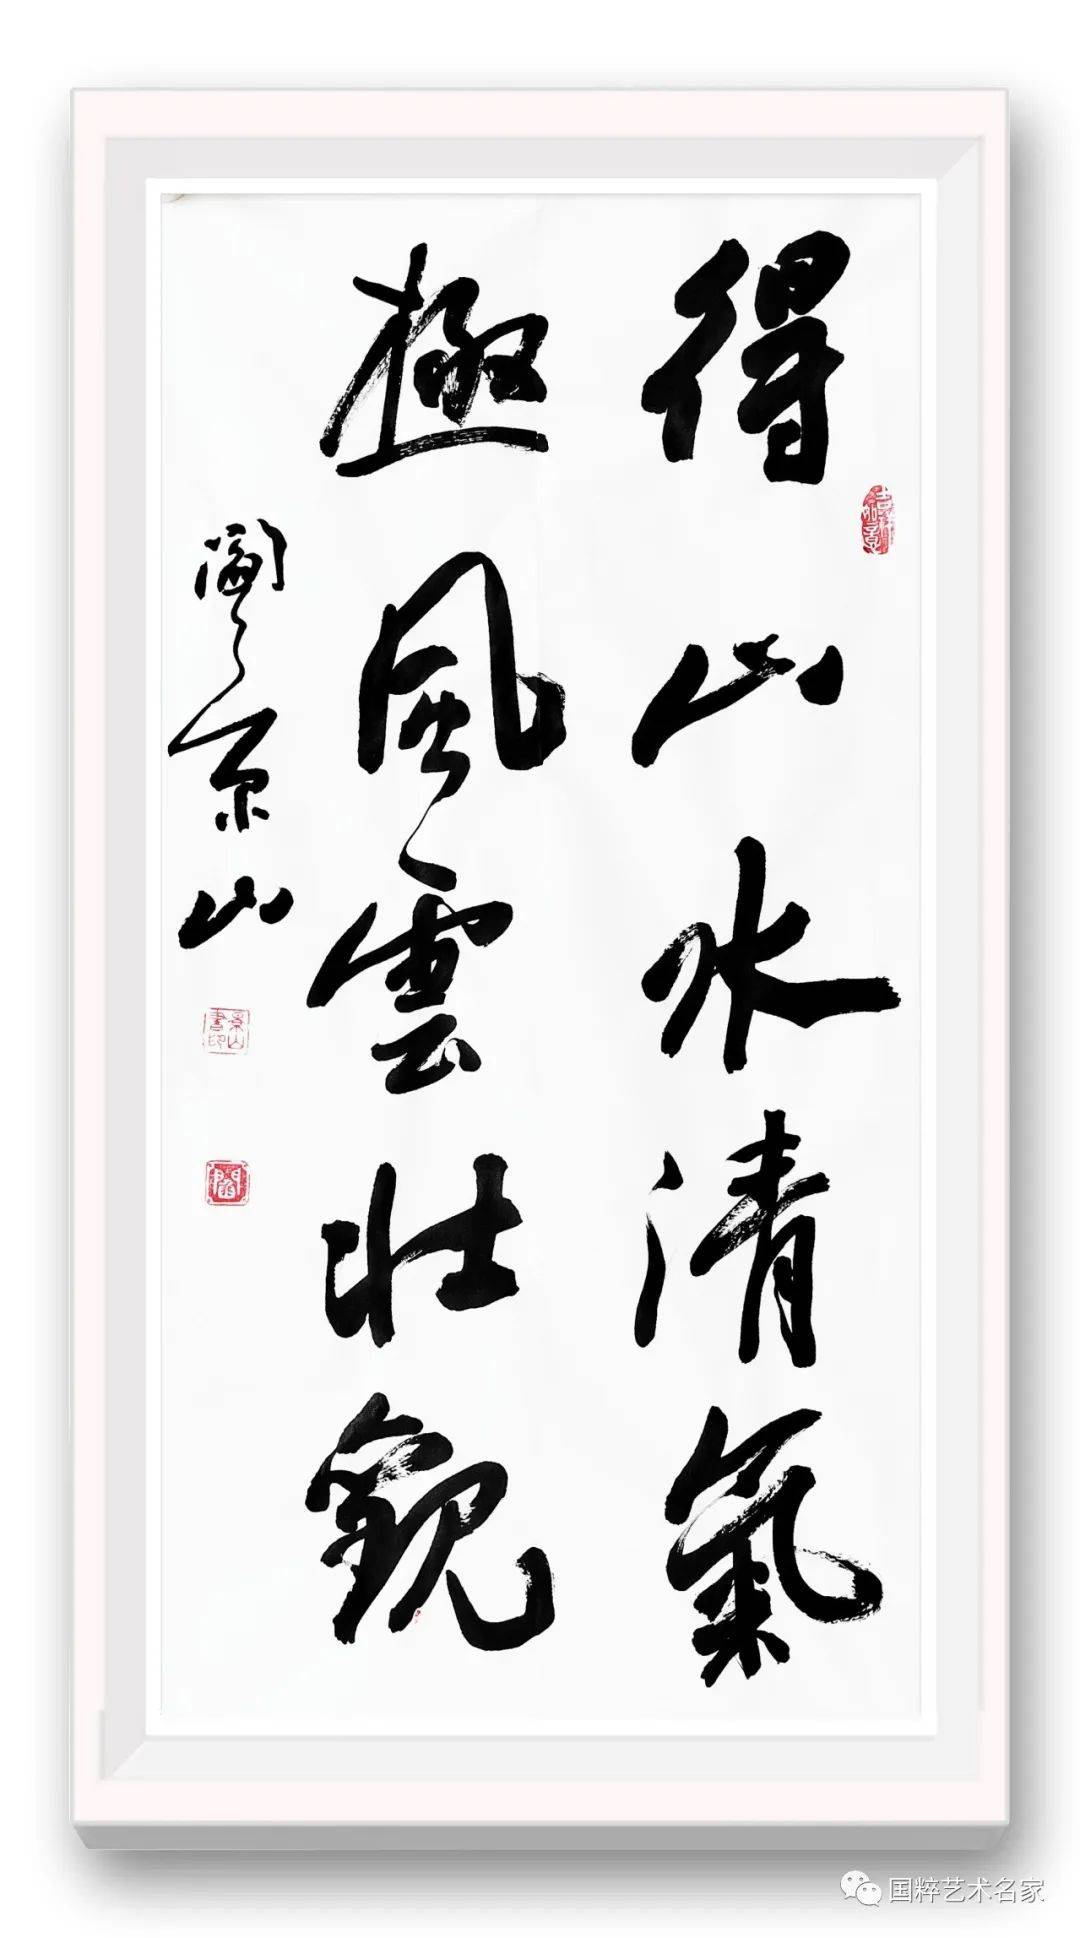 得山水清氣
極風雲壯觀
景山
景山書印
国粹艺术名家